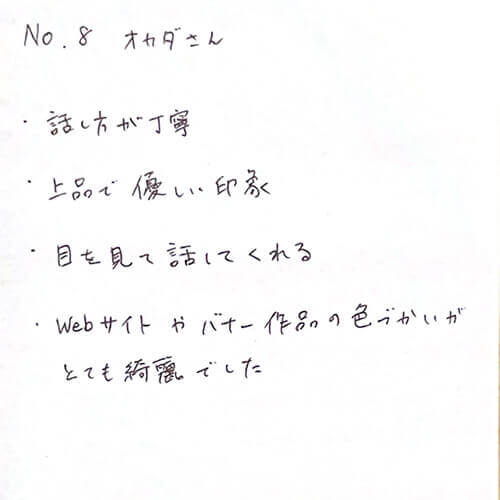 No.8 オカダさん
・話し方が丁寧
・上品で優しい印象
・目を見て話してくれる
・Webサイトやバナー作品の色づかいが
とても綺麗でした